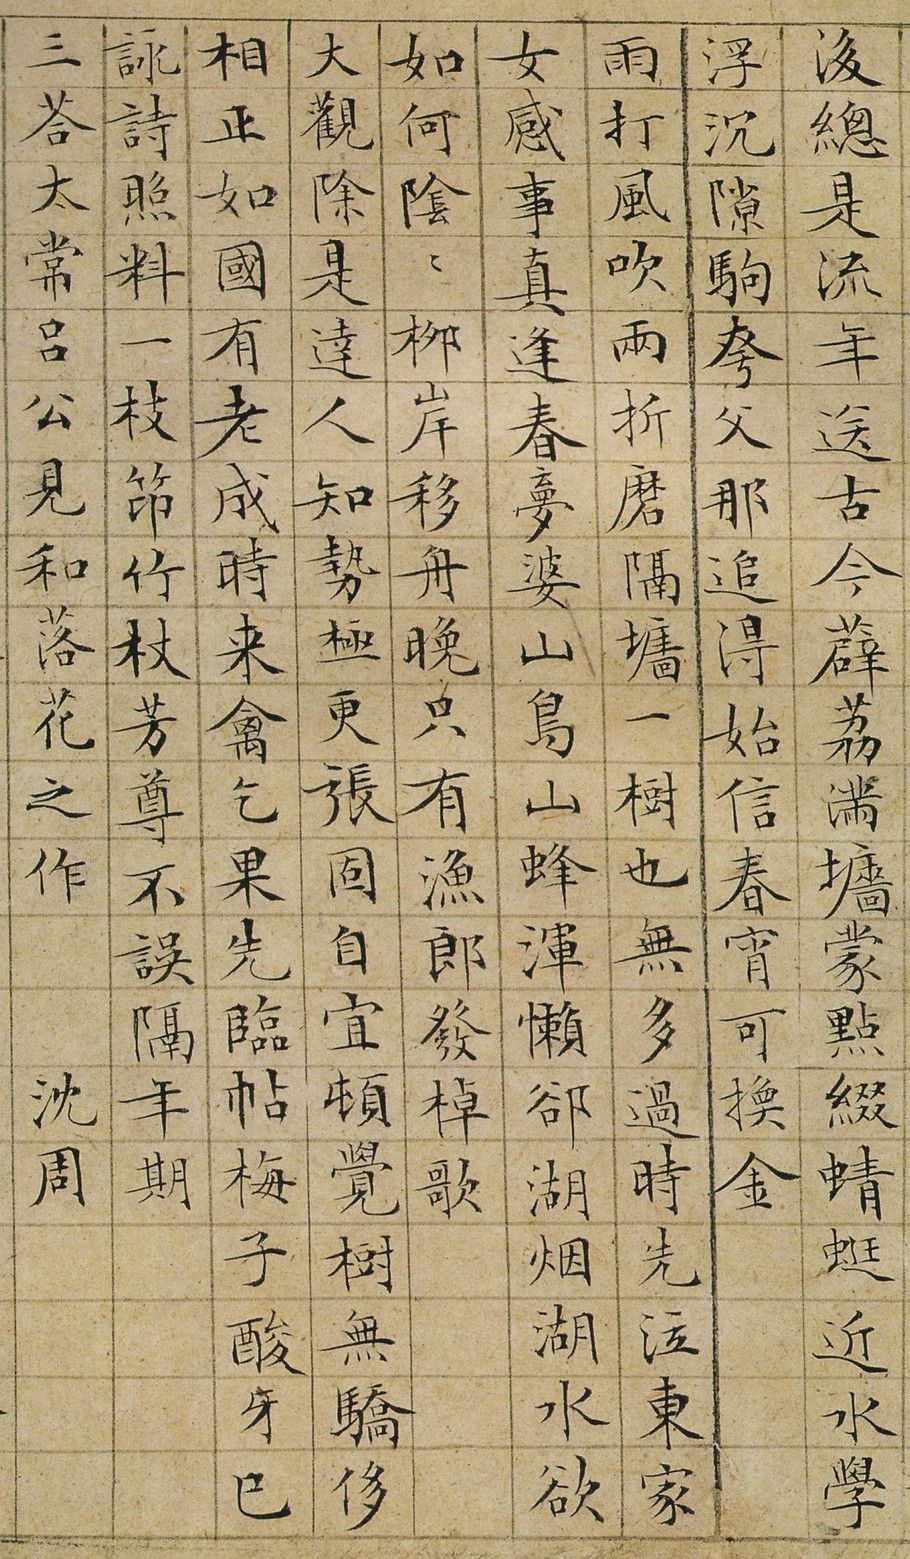 後總是流年送古今薜荔滿墻蒙點綴蜻蜓近水學
浮沉隙駒夸父那追得始信春宵可換金
雨打風吹兩折磨隔墻一樹也無多過時先泣東家
女感事真逢春夢婆山鳥山蜂渾懶郤湖烟湖水欲
如何陰〻柳岸移舟晚只有漁郎發棹歌
大觀除是達人知勢極更張固自宜頓覺樹無驕侈
相正如國有老成時来禽乞果先臨帖梅子酸牙已
詠詩照料一枝笻竹杖芳尊不誤隔年期
三荅太常呂公見和落花之作 沈周